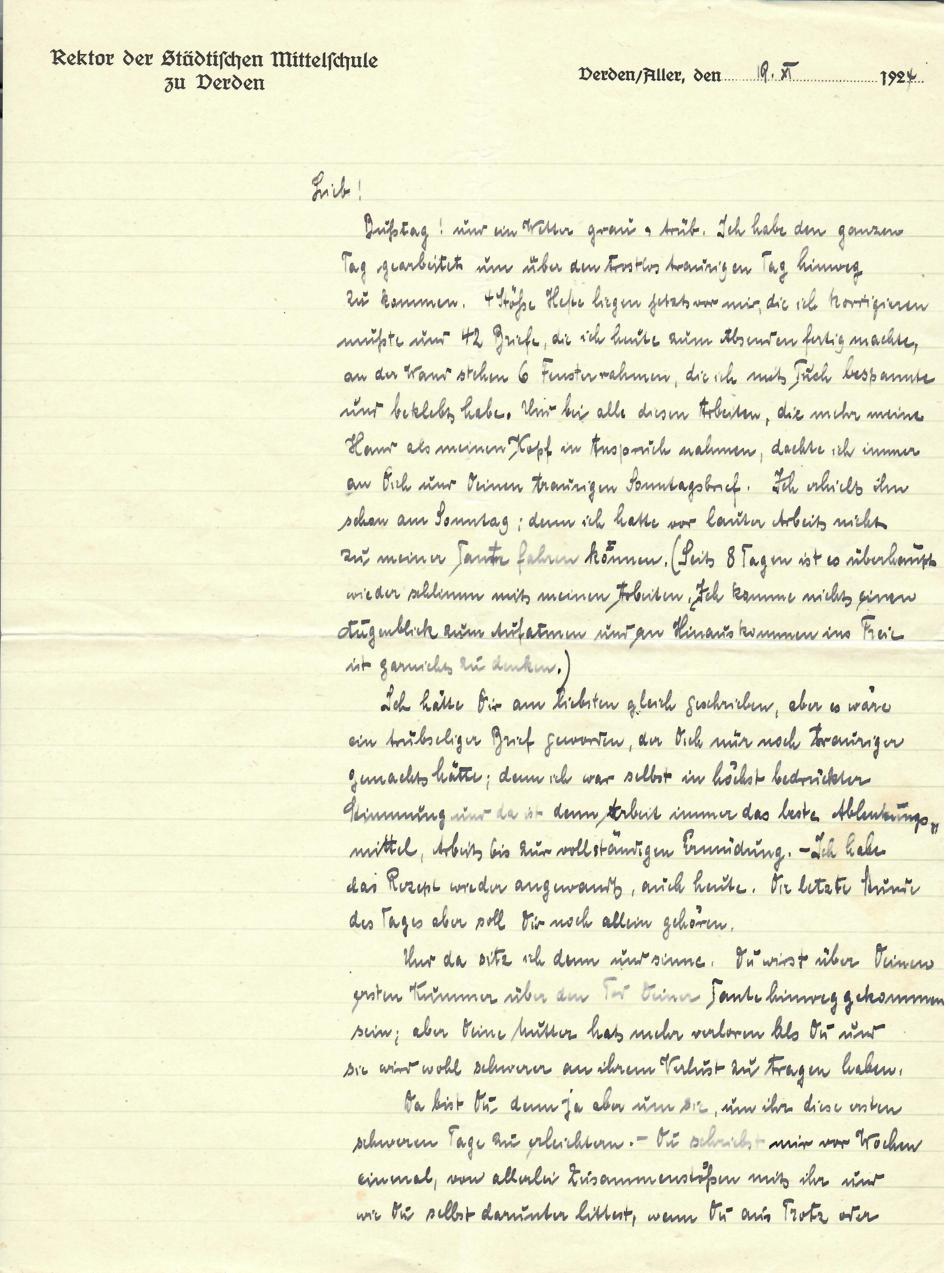 Rektor der Städtischen Mittelschule
zu Verden
Verden/Aller, den 19. XI 1924
Lieb!
Bußtag! und ein Wetter grau u trüb. Ich habe den ganzen
Tag gearbeitet um über den trostlos traurigen Tag hinweg
zu kommen. 4 Stöße Hefte liegen jetzt vor mir, die ich korrigieren
mußte und 42 Briefe, die ich heute zum Absenden fertig machte,
an der Wand stehen 6 Fensterrahmen, die ich mit Tuch bespannte
und beklebt habe. Und bei alle diesen Arbeiten, die mehr meine
Hand als meinen Kopf in Anspruch nahmen, dachte ich immer
an Dich und Deinen traurigen Sonntagsbrief. Ich erhielt ihn
schon am Sonntag; denn ich hatte vor lauter Arbeit nicht
zu meiner Tante fahren können. (Seit 8 Tagen ist es überhaupt
wieder schlimm mit meinen Arbeiten. Ich komme nicht einen
Augenblick zum Aufatmen und an Hinauskommen ins Freie
ist garnicht zu denken.)
Ich hätte Dir am liebsten gleich geschrieben, aber es wäre
ein trübseliger Brief geworden, der Dich nur noch trauriger
gemacht hätte; denn ich war selbst in höchst bedrückter
Stimmung und da ist denn Arbeit immer das beste Ablenkungs„
mittel, Arbeit bis zur vollständigen Ermüdung. – Ich habe
das Rezept wieder angewandt, auch heute. Die letzte Stunde
des Tages aber soll Dir noch allein gehören.
Und da sitz ich denn und sinne. Du wirst über Deinen
ersten Kummer über den Tod Deiner Tante hinweggekommen
sein; aber Deine Mutter hat mehr verloren als Du und
sie wird wohl schwerer an ihrem Verlust zu tragen haben.
Da bist Du denn ja aber um sie, um ihr diese ersten
schweren Tage zu erleichtern. – Du schriebst mir vor Wochen
einmal, von allerlei Zusammenstößen mit ihr und
wie Du selbst darunter littest, wenn Du aus Trotz oder